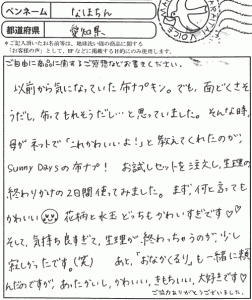 ペンネーム なほちん
都道府県 愛知県
＊ご記入頂いたお名前等は、地球洗い隊の商品に関する
「お客様の声」として、HPなどに掲載する目的にのみ使用します。
ご自由に商品に関するご感想などお書きください。
以前から気になっていた布ナプキン。でも、面どくさそ
うだし、布ってもれそうだし…と思っていました。そんな時、
母がネットで「これかわいいよ！」と教えてくれたのが、
Sunny Daysの布ナプ！ お試しセットを注文し、生理の
終わりがけの2日間使ってみました。まず、何と言っても
かわいい 花柄と水玉 どっちもかわいすぎです♡♡
そして、気持ち良すぎて、生理が終わっちゃうのが、少し
寂しかったです。(笑) あと、「おなかくるり」も一緒に頼
んだのですが、あったかいし、かわいい、きもちいい、大好きです♡
ご協力ありがとうございました。